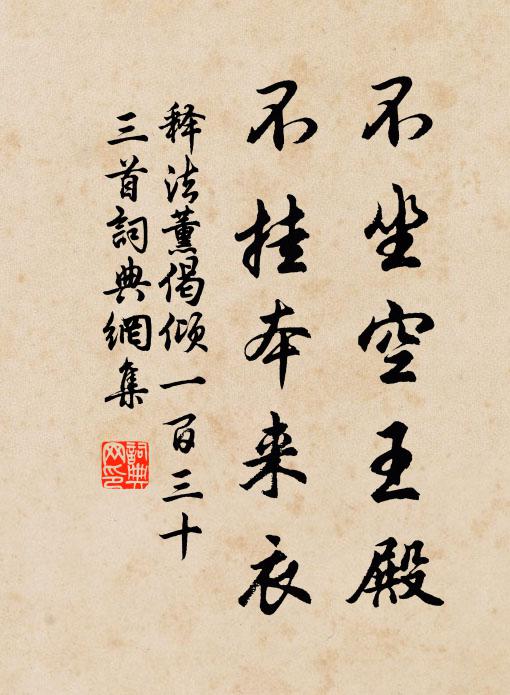 不坐空王殿
不挂本来衣
释法薰偈倾一百三十
三首詞典網集
詞典
网印